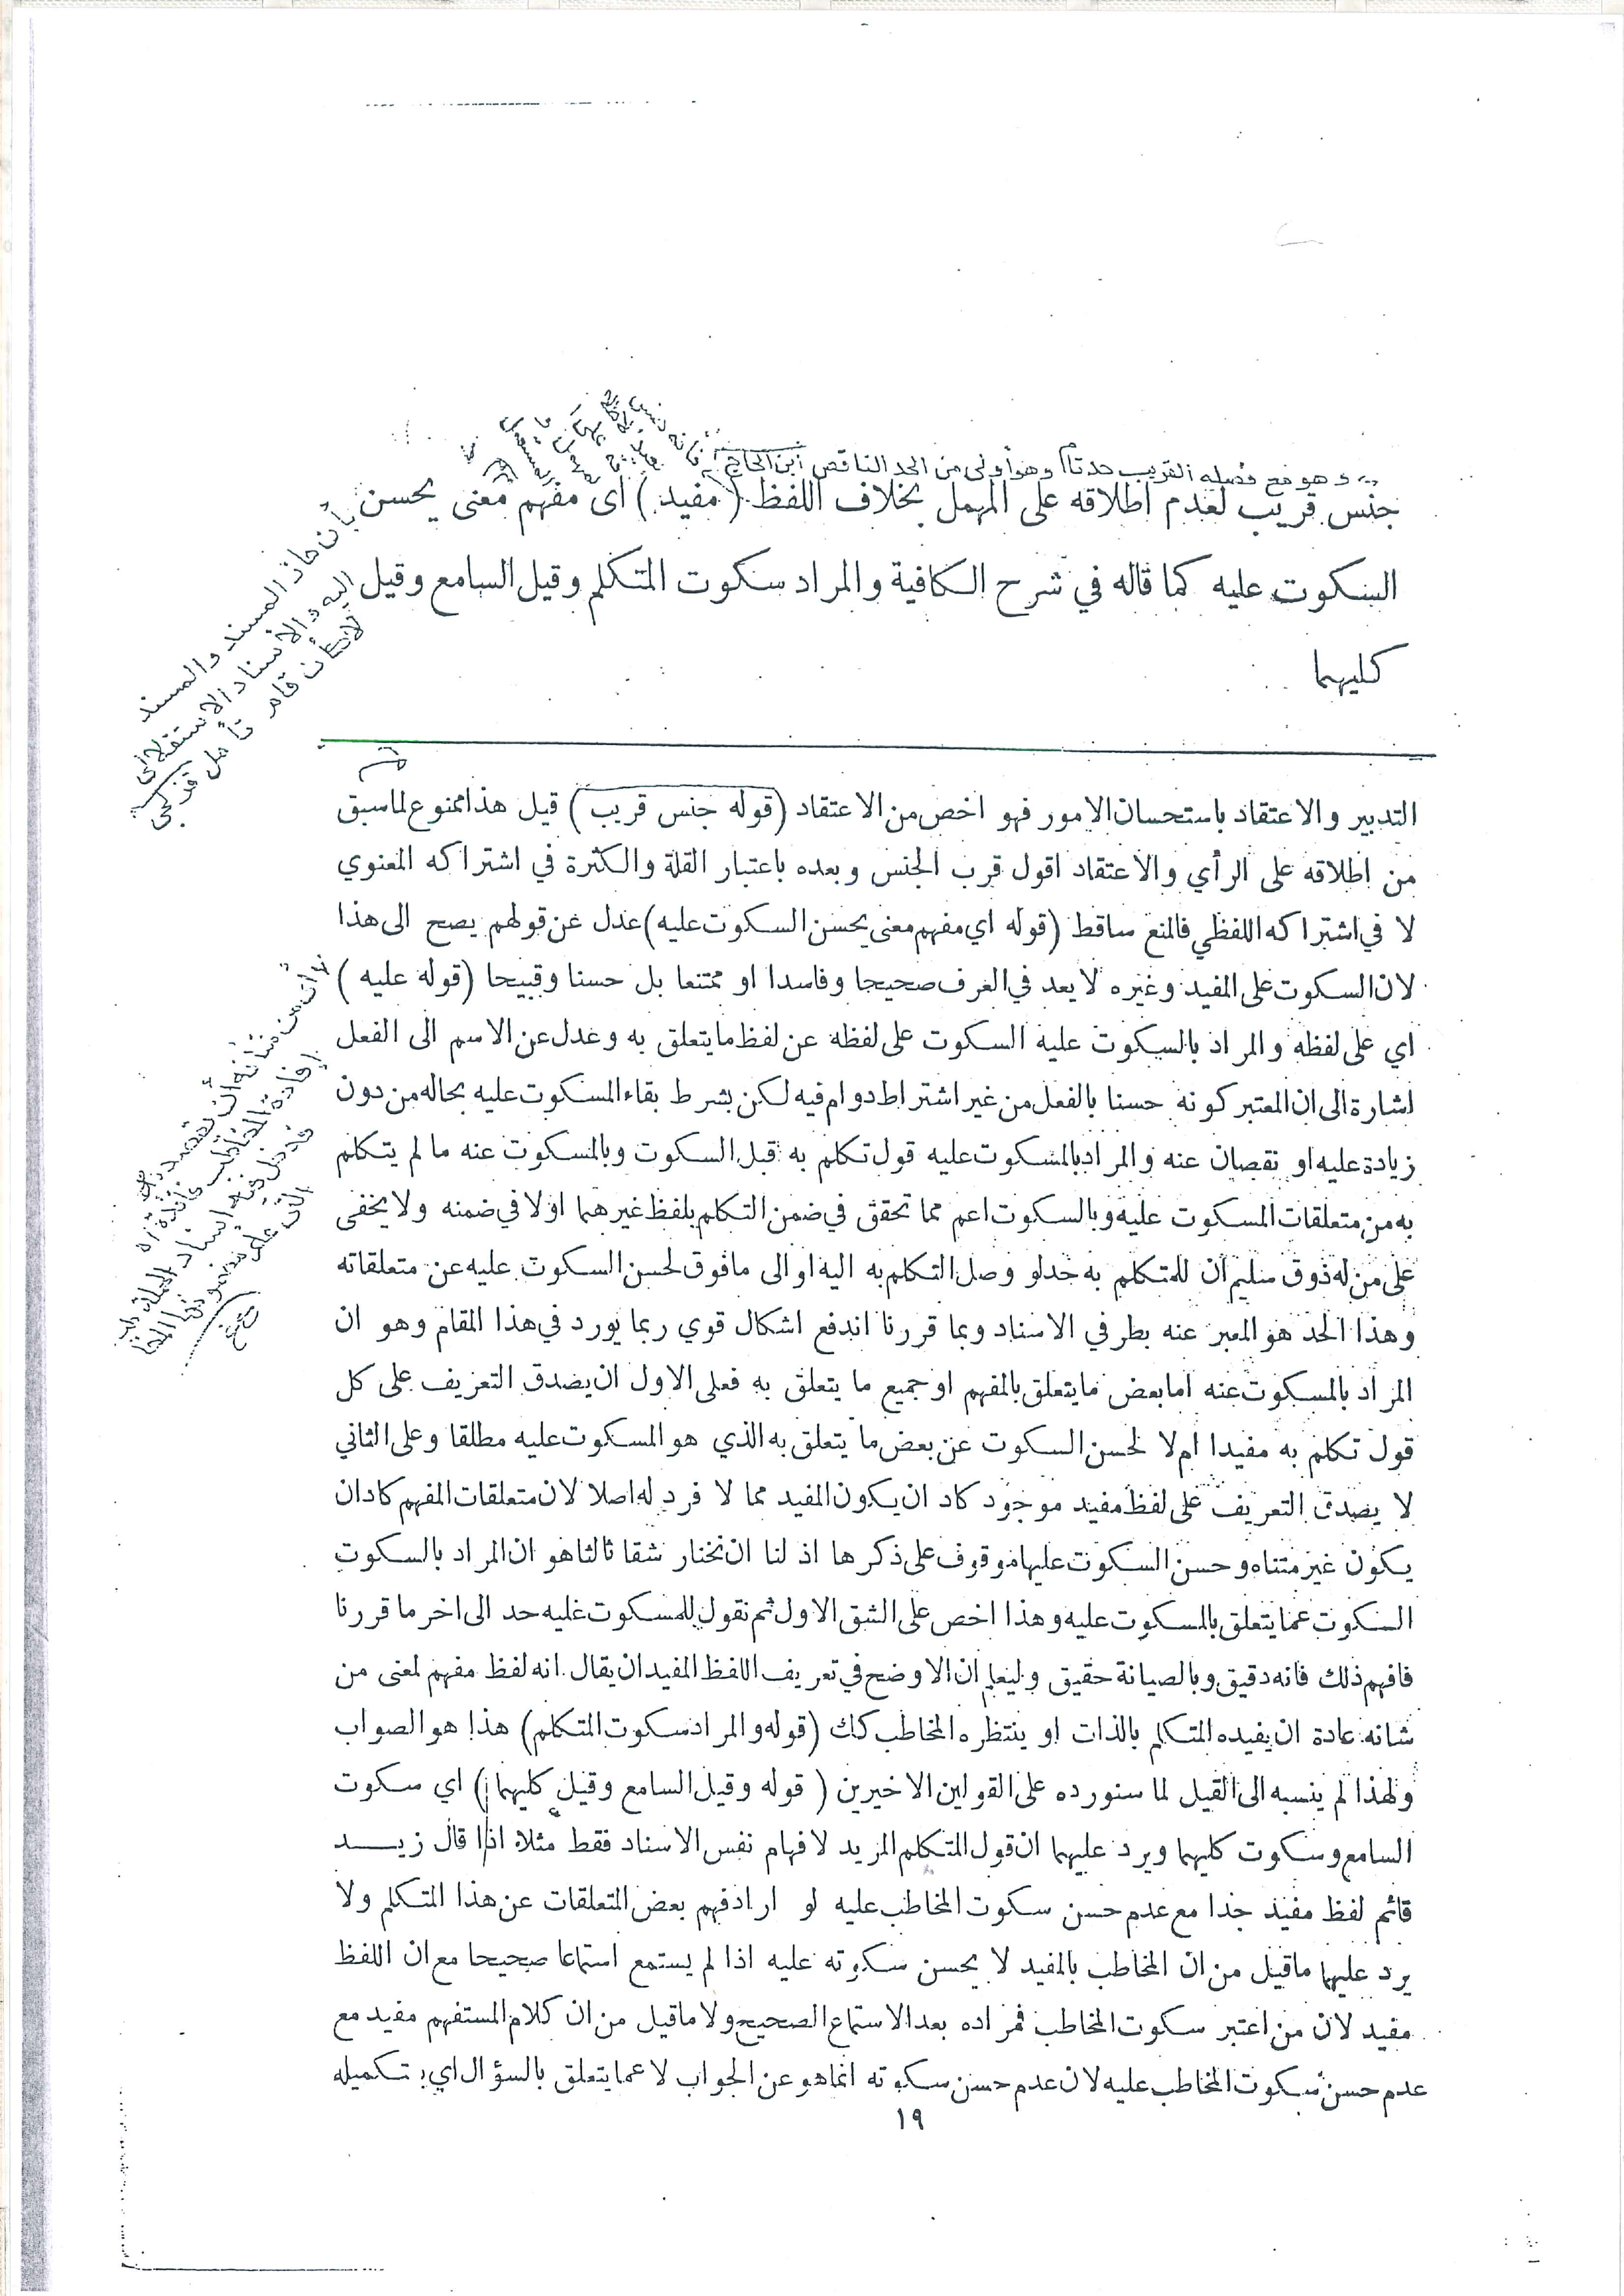 وهو مع فصله القريب حد تام وهو أولى من الحد الناقص ابن الحاج
جنس قريب لعدم اطلاقه على المهمل بخلاف اللفظ (مفيد) اى مفهم معنى يحسن
السكوت عليه كما قاله في شرح الكافية والمراد سكوت المتكلم وقيل السامع وقيل
كليهما
المسند والمسند
اليه والاسناد الاستقلالى
قام تأمل قزلجى
التدبير والاعتقاد باستحسان الامور فهو اخص من الاعتقاد (قوله جنس قريب) قيل هذا ممنوع لما سبق
من اطلاقه على الرأي والاعتقاد اقول قرب الجنس وبعده باعتبار القلة والكثرة في اشتراكه المعنوي
لا في اشتراكه اللفظي فالمنع ساقط (قوله اي مفهم معنى يحسن السكوت عليه) عدل عن قولهم يصح الى هذا
لان السكوت على المفيد وغيره لا يعد في العرف صحيحا وفاسدا او ممتنعا بل حسنا وقبيحا (قوله عليه)
اي على لفظه والمراد بالسكوت عليه السكوت على لفظه عن لفظ ما يتعلق به وعدل عن الاسم الى الفعل
اشارة الى ان المعتبر كونه حسنا بالفعل من غير اشتراط دوام فيه لكن بشرط بقاء المسكوت عليه بحاله من دون
زيادة عليه او نقصان عنه والمراد بالمسكوت عليه قول تكلم به قبل السكوت وبالمسكوت عنه ما لم يتكلم
به من متعلقات المسكوت عليه وبالسكوت اعم مما تحقق في ضمن التكلم بلفظ غيرهما اولا في ضمنه ولا يخفى
على من له ذوق سليم ان للمتكلم به حد لو وصل التكلم به اليه او الى مافوق لحسن السكوت عليه عن متعلقاته
وهذا الحد هو المعبر عنه بطرفي الاسناد وبما قررنا اندفع اشكال قوي ربما يورد في هذا المقام وهو ان
المراد بالمسكوت عنه اما بعض ما يتعلق بالمفهم او جميع ما يتعلق به فعلى الاول ان يصدق التعريف على كل
قول تكلم به مفيدا ام لا لحسن السكوت عن بعض ما يتعلق به الذي هو المسكوت عليه مطلقا وعلى الثاني
لا يصدق التعريف على لفظ مفيد موجود كاد ان يكون المفيد مما لا فرد له اصلا لان متعلقات المفهم كاد ان
يكون غير متناه وحسن السكوت عليها موقوف على ذكرها اذ لنا ان نختار شقا ثالثا هو ان المراد بالسكوت
السكوت عما يتعلق بالمسكوت عليه وهذا اخص على الشق الاول ثم نقول للمسكوت عليه حد الى اخر ما قررنا
فافهم ذلك فانه دقيق وبالصيانة حقيق وليعلم ان الاوضح في تعريف اللفظ المفيد ان يقال انه لفظ مفهم لمعنى من
شانه عادة ان يفيده المتكلم بالذات او ينتظره المخاطب كك (قوله والمراد سكوت المتكلم) هذا هو الصواب
ولهذا لم ينسبه الى القيل لما سنورده على القولين الاخيرين (قوله وقيل السامع وقيل كليهما) اي سكوت
السامع وسكوت كليهما ويرد عليهما ان قول المتكلم المريد لافهام نفس الاسناد فقط مثلا اذا قال زيد
قائم لفظ مفيد جدا مع عدم حسن سكوت المخاطب عليه لو اراد فهم بعض المتعلقات عن هذا المتكلم ولا
يرد عليها ماقيل من ان المخاطب بالمفيد لا يحسن سكوته عليه اذا لم يستمع استماعا صحيحا مع ان اللفظ
مفيد لان من اعتبر سكوت المخاطب فمراده بعد الاستماع الصحيح ولا ماقيل من ان كلام المستفهم مفيد مع
عدم حسن سكوت المخاطب عليه لان عدم حسن سكوته انما هو عن الجواب لا عما يتعلق بالسؤال اي بتكميله
١٩